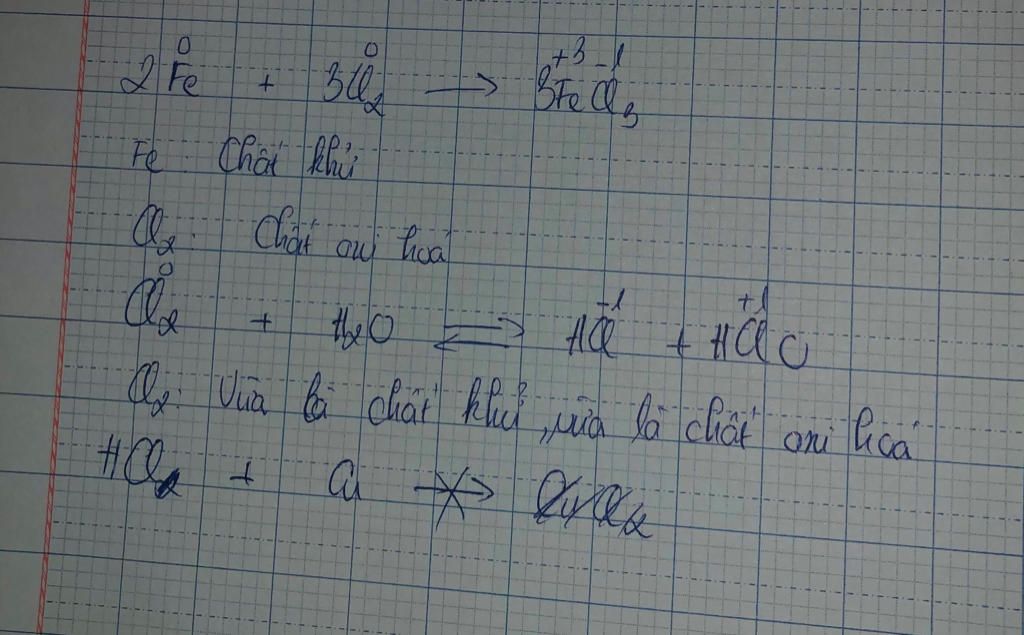 0 0 +3 -1
2Fe + 3Cl2 → 3FeCl3
Fe: Chất khử
Cl2: Chất oxi hoá
0 -1 +1
Cl2 + H2O ⇌ HCl + HClO
Cl2: Vừa là chất khử, vừa là chất oxi hoá
HCl + Cu →